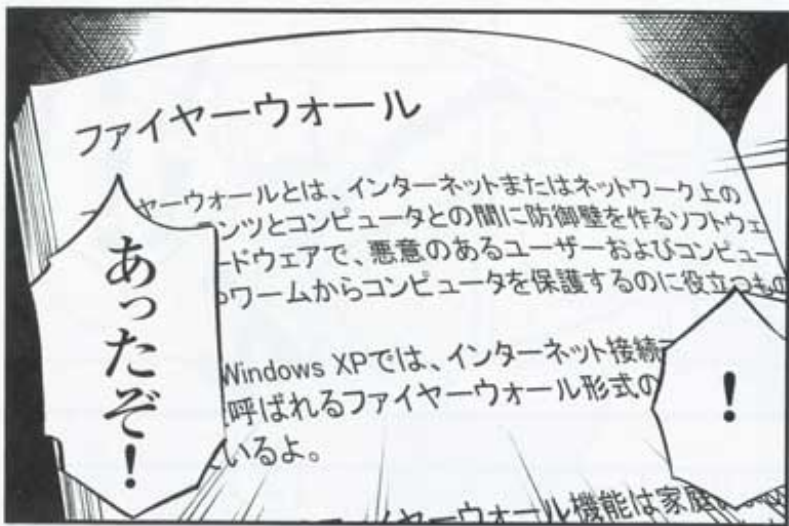 ファイヤーウォール
ヤーウォールとは、インターネットまたはネットワーク上の
ンツとコンピュータとの間に防御壁を作るソフトウェ
ードウェアで、悪意のあるユーザーおよびコンピュー
ワームからコンピュータを保護するのに役立つもの
Windows XPでは、インターネット接続
呼ばれるファイヤーウォール形式の
いるよ。
イヤーウォール機能は家庭
!
あったぞ!